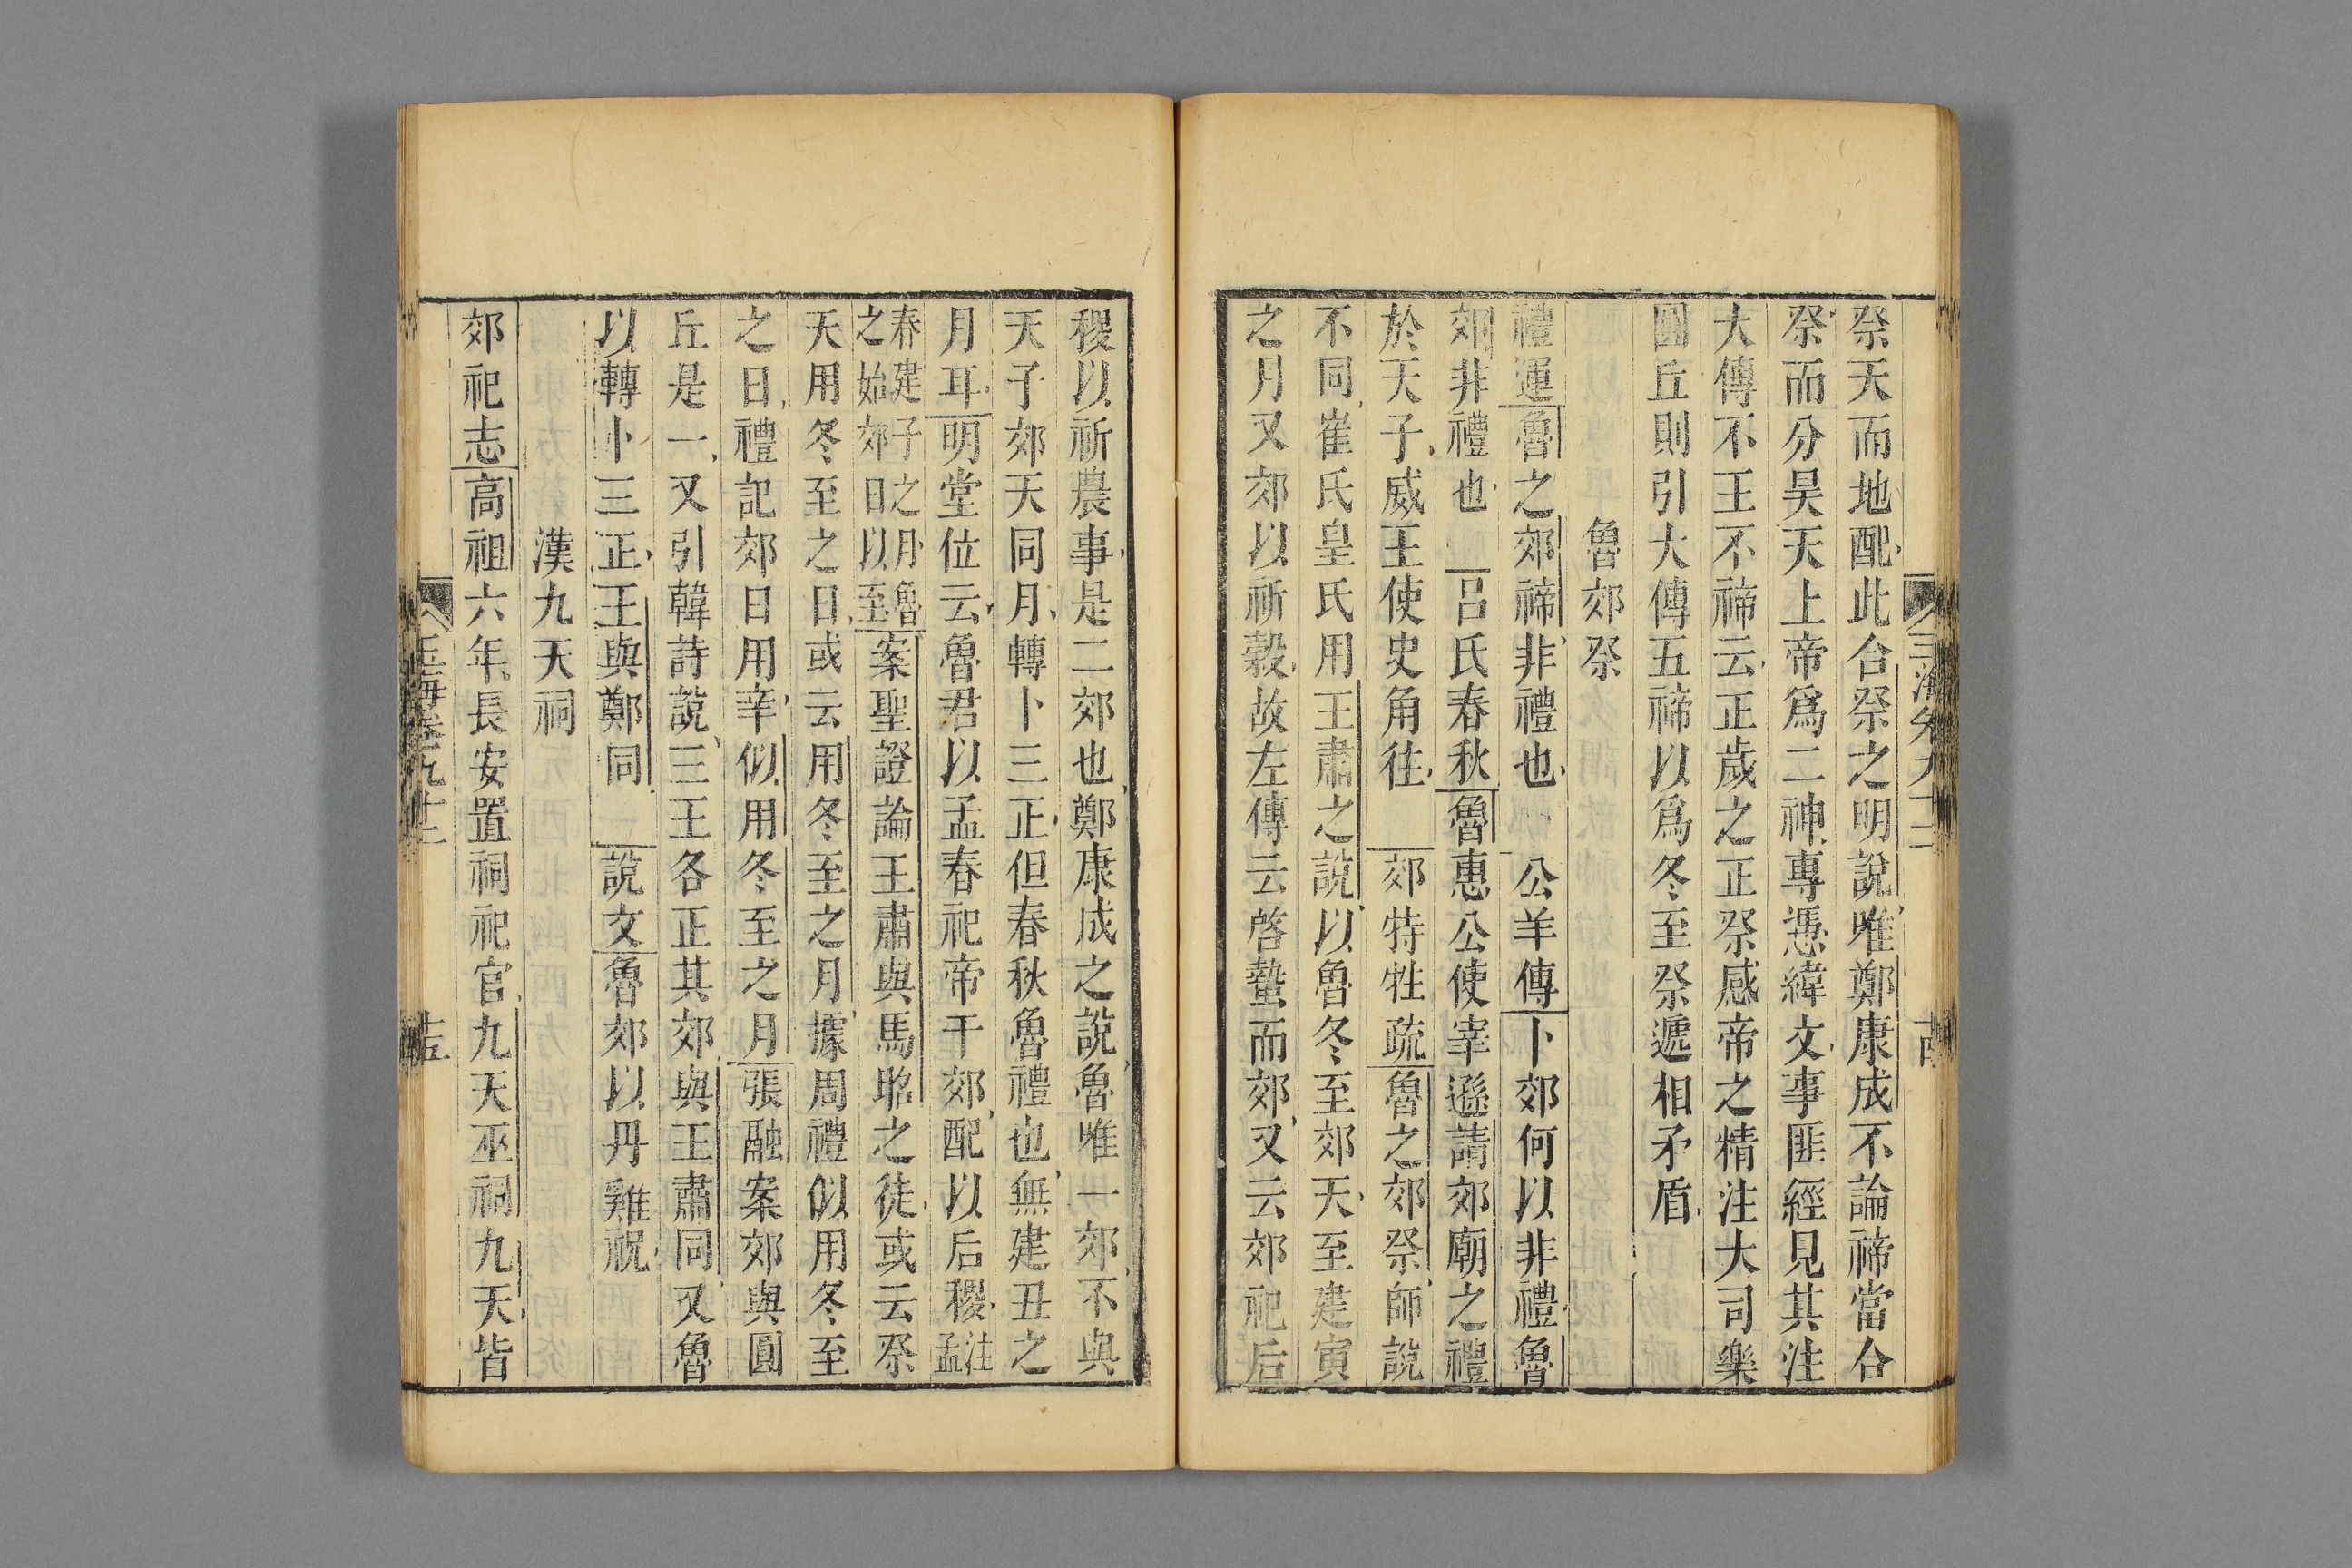 祭天而地配此合祭之明說唯鄭康成不論禘當合
祭而分昊天上帝爲二神專憑緯文事匪經見其注
大傳不王不禘云正歲之正祭感帝之精注大司樂
圜丘則引大傳五禘以爲冬至祭遞相矛盾
魯郊祭
禮運魯之郊禘非禮也 公羊傳卜郊何以非禮魯
郊非禮也 呂氏春秋魯惠公使宰遜請郊廟之禮
於天子威王使史角往 郊特牲疏魯之郊祭師說
不同崔氏皇氏用王肅之說以魯冬至郊天至建寅
之月又郊以祈穀故左傳云啓蟄而郊又云郊祀后
稷以祈農事是二郊也鄭康成之說魯唯一郊不與
天子郊天同月轉卜三正但春秋魯禮也無建丑之
月耳明堂位云魯君以孟春祀帝于郊配以后稷注孟
春建子之月魯之始郊日以至案聖證論王肅與馬昭之徒或云祭
天用冬至之日或云用冬至之月據周禮似用冬至
之日禮記郊日用辛似用冬至之月張融案郊與圓
丘是一又引韓詩說三王各正其郊與王肅同又魯
以轉卜三正王與鄭同 說文魯郊以丹雞祝
漢九天祠
郊祀志高祖六年長安置祠祀官九天巫祠九天皆
玉海卷九十三 十五